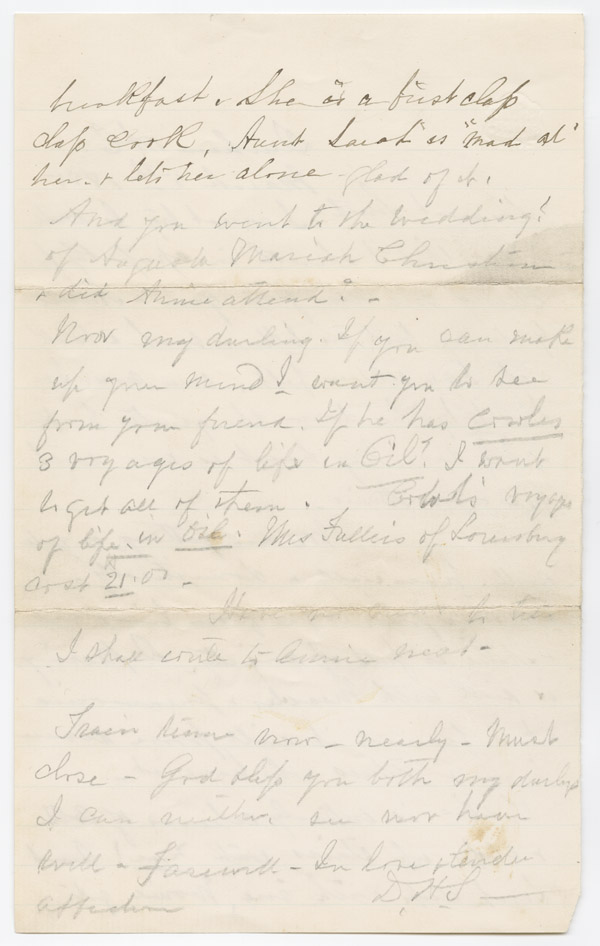 breakfast & She is a first class
class cook, Aunt Sarah "is "mad at"
her. & lets her alone glad of it.
And you went to the wedding!
of Augusta Mariah Christian
& did Annie attend? -
Now my darling. If you can make
up your mind I want you to see
from your friend. If he has Cowles
3 voyages of life in Oil. I want
to get all of them. voyage
of life. in Oil. Mrs of
Cost 21.00 -
to
I shall write to Annie next -
Train time now - nearly - Must
close - God bless you both my darlings
I can neither see nor hear
well - Farewell - In love & tender
affection D. H. S